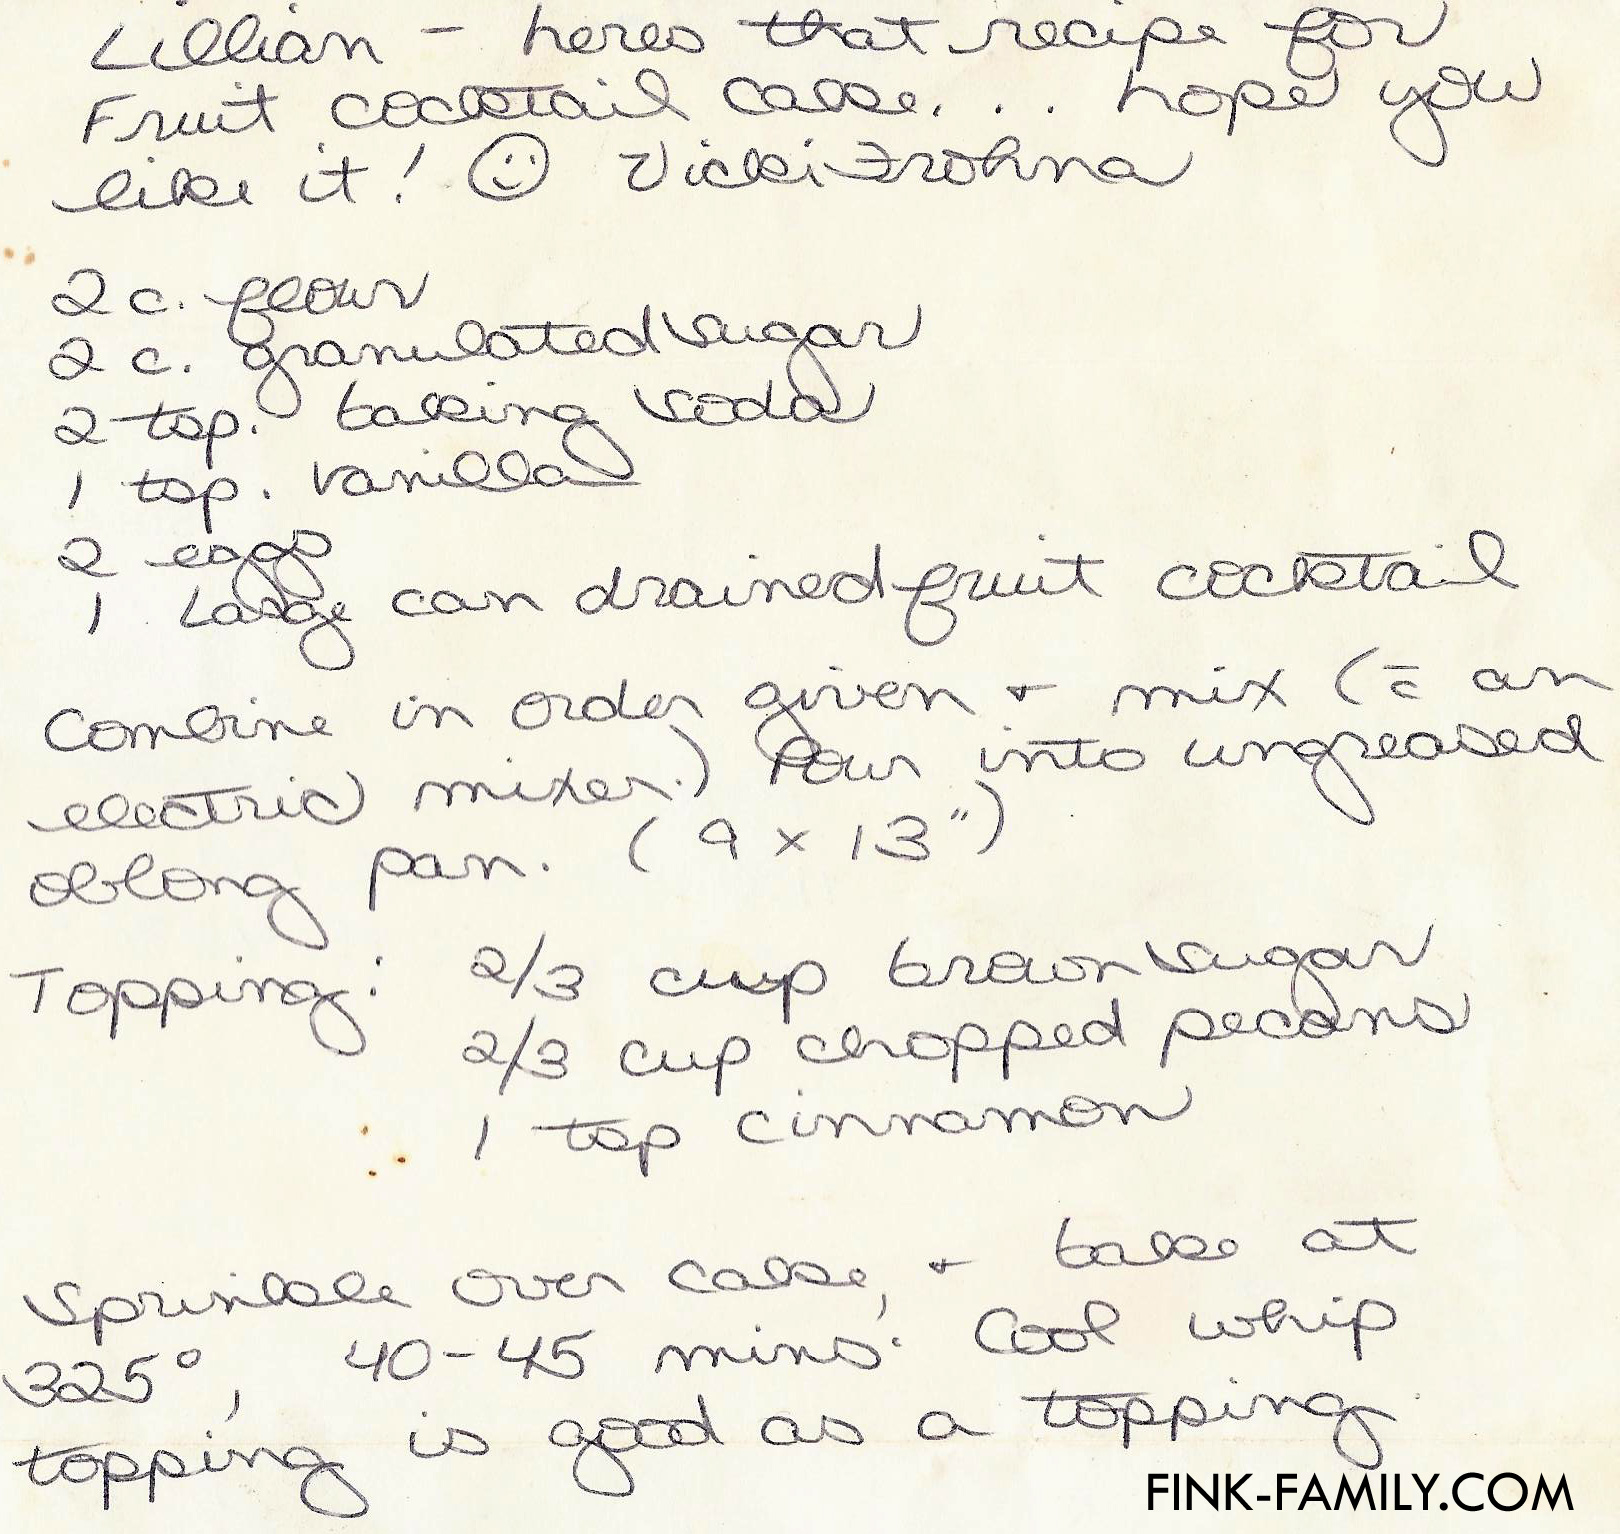 Lillian - heres that recipe for
Fruit cocktail cake... hope you
like it! Vicki Frohna
2 c. flour
2 c. granulated sugar
2 tsp. baking soda
1 tsp. vanilla
2 eggs
1 Large can drained fruit cocktail
Combine in order given + mix (c̄ an
electric mixer.) Pour into ungreased
oblong pan. (9 x 13")
Topping: 2/3 cup brown sugar
2/3 cup chopped pecans
1 tsp cinnamon
Sprinkle over cake, + bake at
325°, 40-45 mins. Cool whip
topping is good as a topping.
FINK-FAMILY.COM